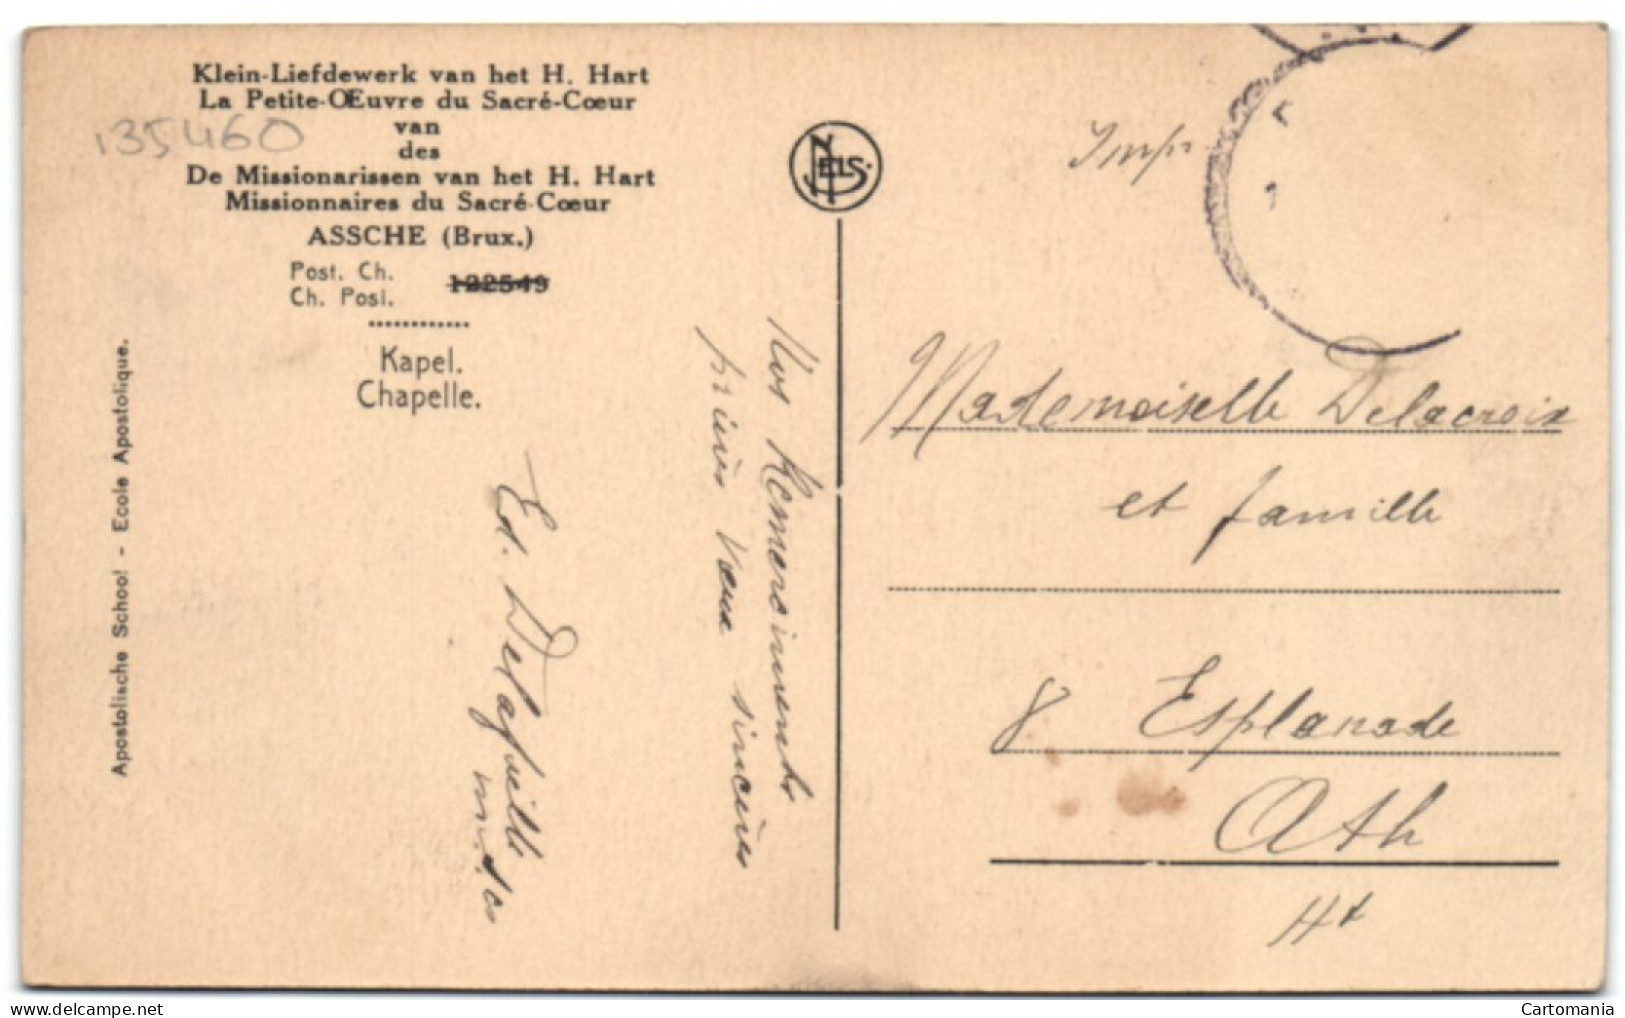 Klein-Liefdewerk van het H. Hart
La Petite-Œuvre du Sacré-Cœur
van
des
De Missionarissen van het H. Hart
Missionnaires du Sacré-Cœur
ASSCHE (Brux.)
Post. Ch.
Ch. Post.
122549
Kapel.
Chapelle.
135460
Apostolische School - Ecole Apostolique.
NELS
Nos Remerciments
prières vœux sincères
Ed. Delafaille
m.s.c.
Imp.
Mademoiselle Delacroix
et famille
8 Esplanade
Ath
Ht
Cartomania